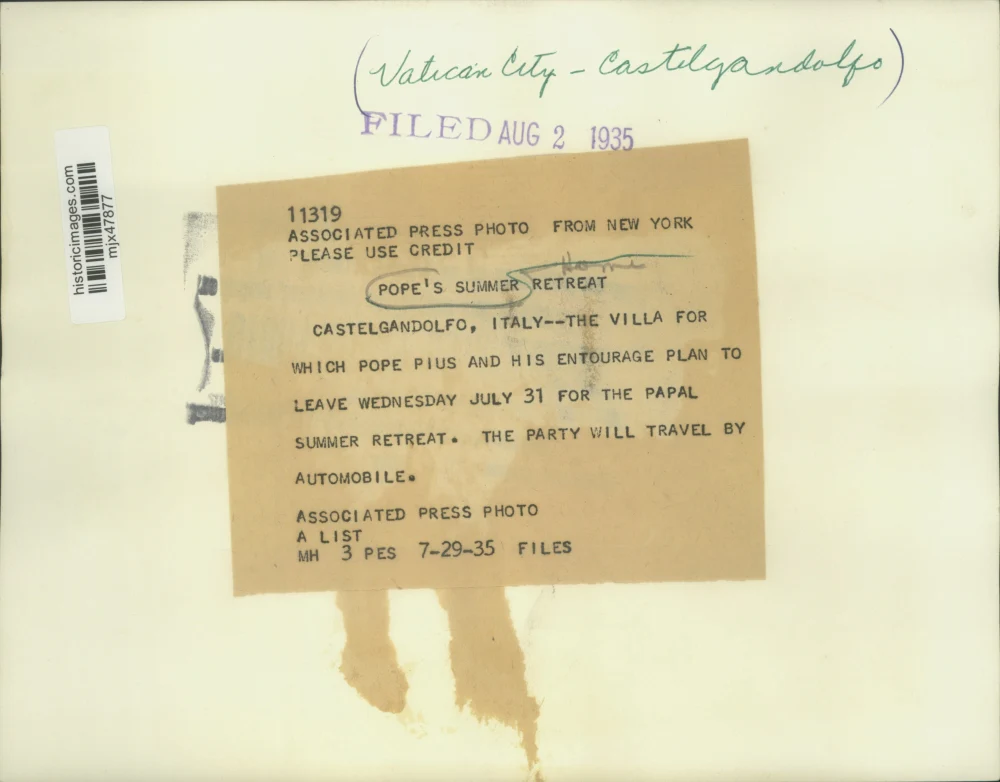 (Vatican City - Castelgandolfo)
FILED AUG 2 1935
historicimages.com
mjx47877
11319
ASSOCIATED PRESS PHOTO FROM NEW YORK
PLEASE USE CREDIT
Home
POPE'S SUMMER RETREAT
CASTELGANDOLFO, ITALY--THE VILLA FOR
WHICH POPE PIUS AND HIS ENTOURAGE PLAN TO
LEAVE WEDNESDAY JULY 31 FOR THE PAPAL
SUMMER RETREAT. THE PARTY WILL TRAVEL BY
AUTOMOBILE.
ASSOCIATED PRESS PHOTO
A LIST
MH 3 PES 7-29-35 FILES